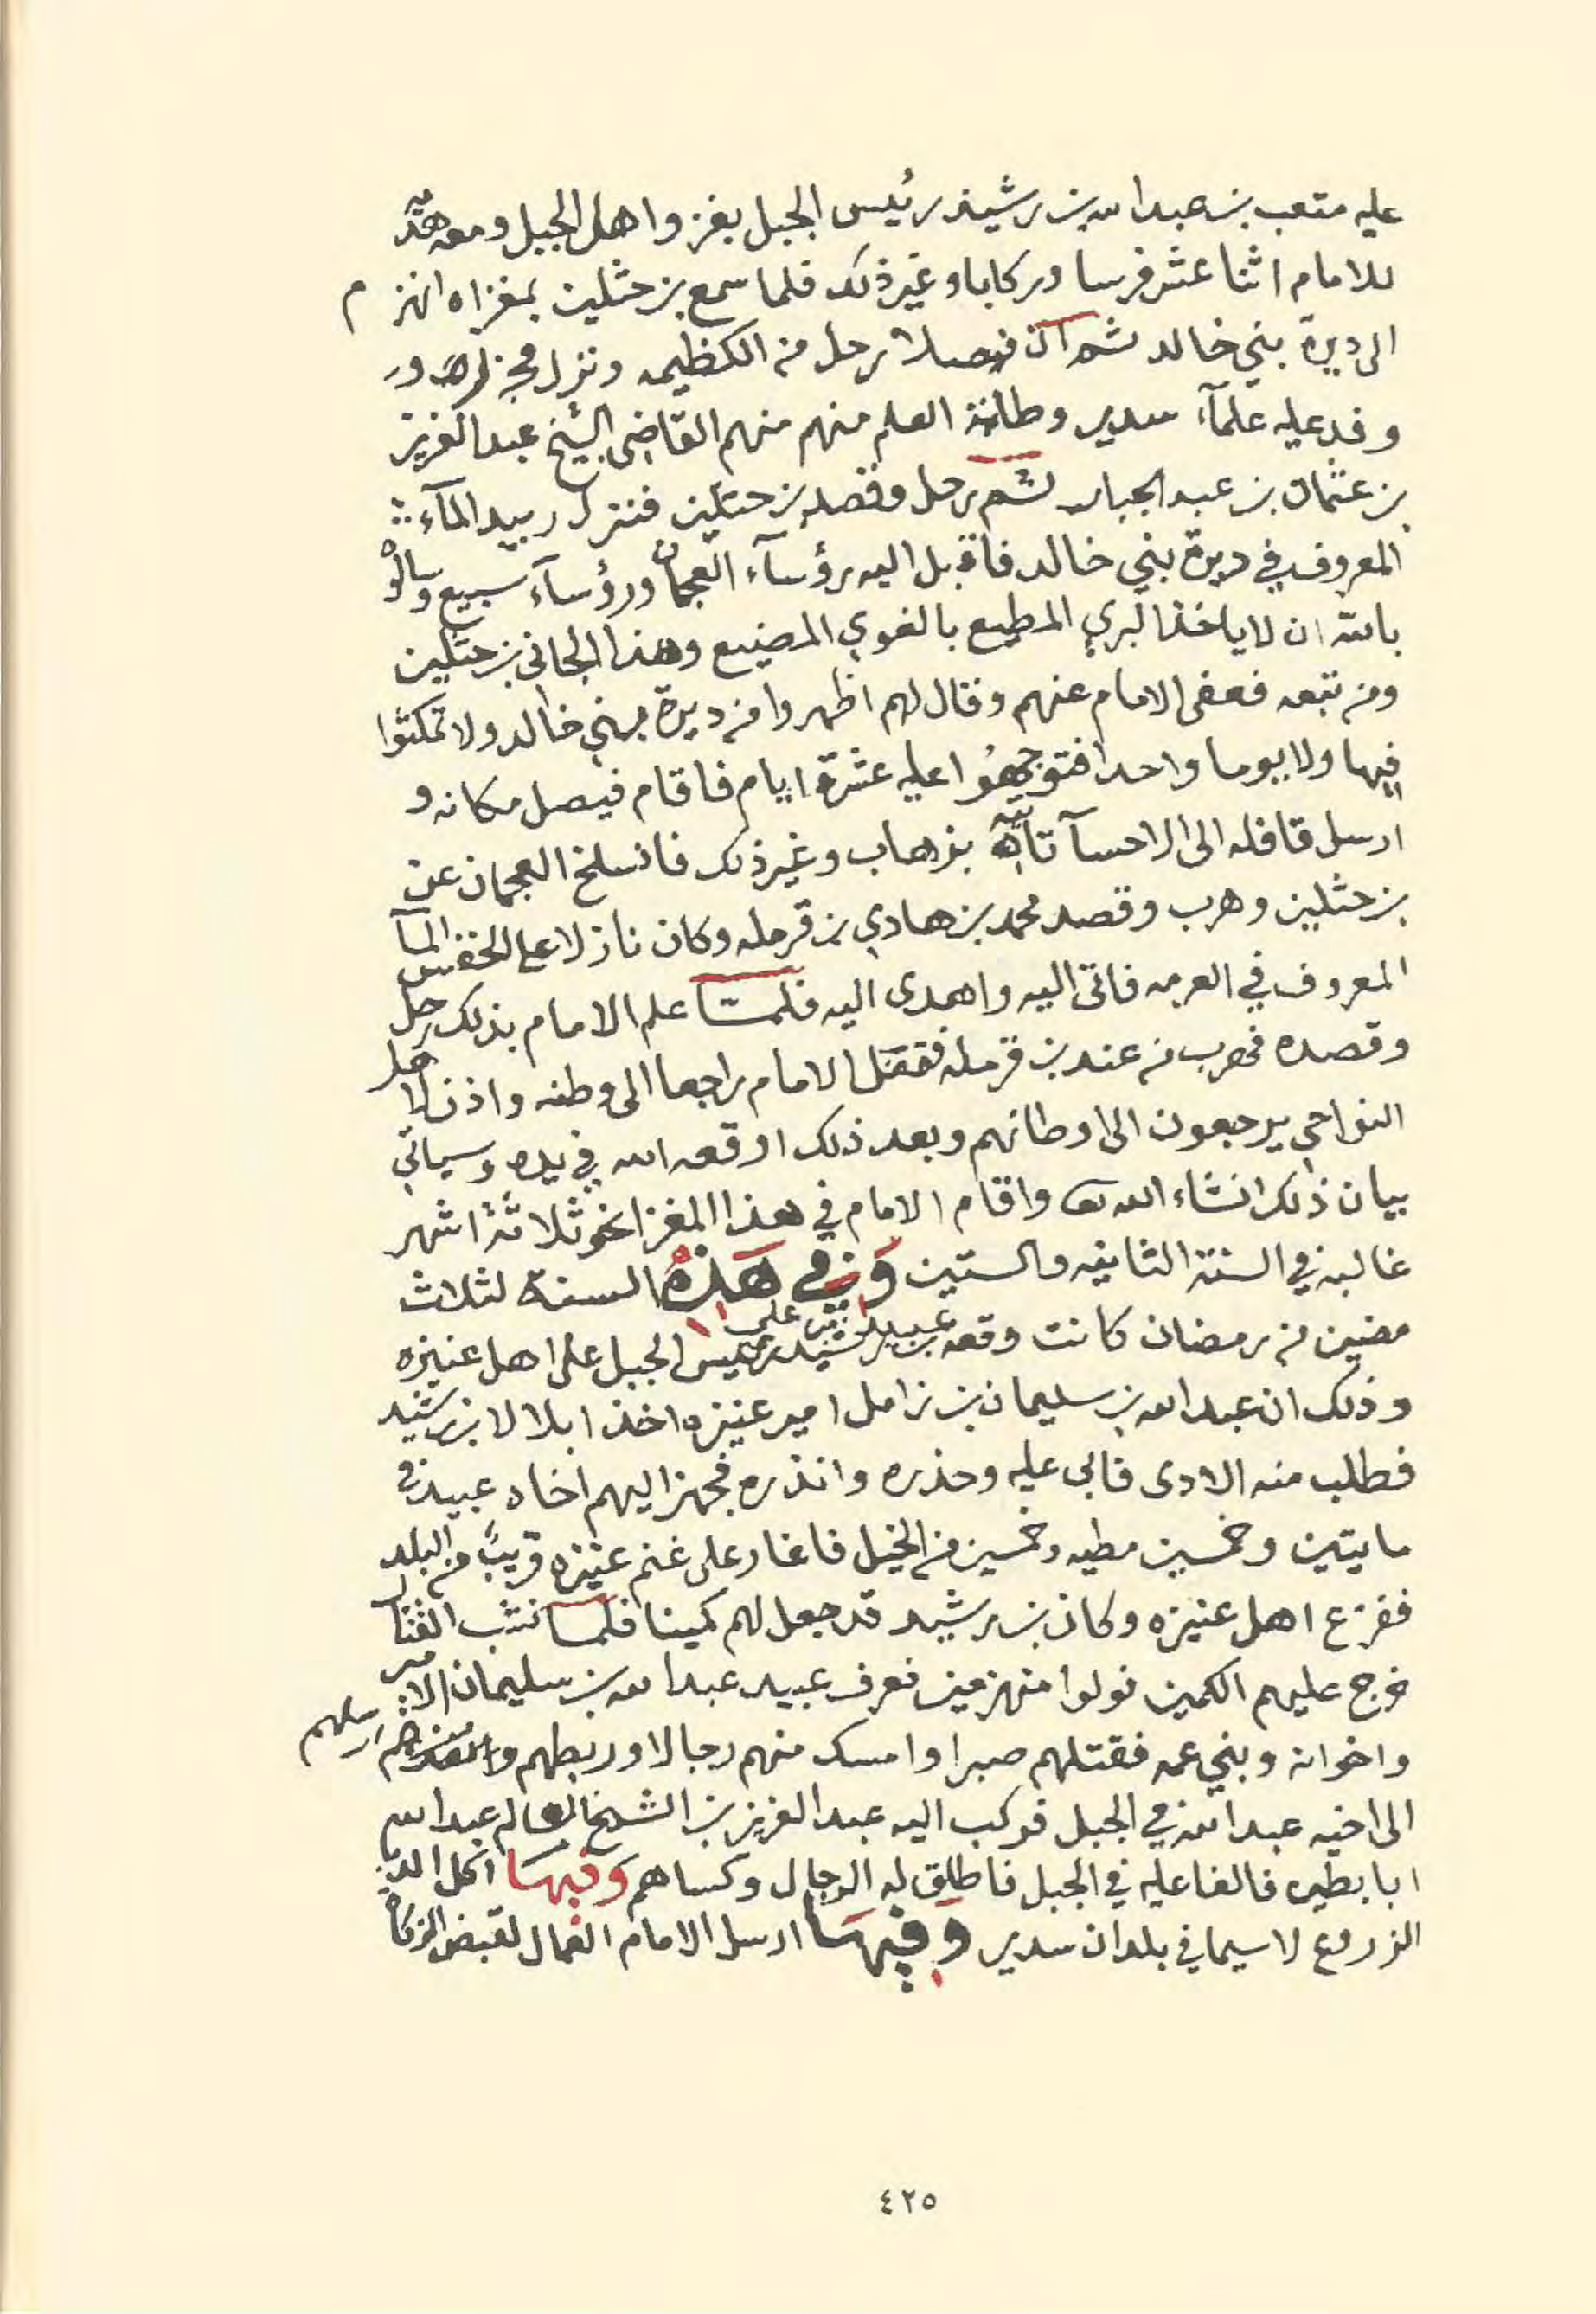 عليه متعب بن عبدالله بن رشيد رئيس الجبل بغزوا اهل الجبل ومعه هديّة
للامام اثنا عشر فرسا وركابا وغير ذلك فلما سمع بن حثلين بمغزاه انهزم
الى ديرة بني خالد ثم ان فيصلا رحل من الكظيمه ونزل مجزل و
وفد عليه علمآء سدير وطلبة العلم منهم منهم القاضي الشيخ عبدالعزيز
بن عثمان بن عبدالجبار ثم رحل وقصد بن حثلين فنزل المآء
المعروف في ديرة بني خالد فاقبل اليه رؤسآء العجمان ورؤسآء سبيع وسالوه
بالله ان لا ياخذ البري المطيع بالغوي المضيع وهذا الجاني بن حثلين
ومن تبعه فعفى الامام عنهم وقال لهم اظهروا من ديرة بني خالد ولا تمكثوا
فيها ولا يوما واحدا فتوجهوا عليه عشرة ايام فاقام فيصل مكانه و
ارسل قافله الى الاحسآ تأتيه بزهاب وغير ذلك فانسلخ العجمان عن
بن حثلين وهرب وقصد محمد بن هادي بن قرمله وكان نازلا على الخفس المآ
المعروف في العرمه فاتى اليه واهدى اليه فلمّا علم الامام بذلك رحل
وقصده فهرب من عند بن قرمله فقفل الامام راجعا الى وطنه واذن لاهل
النواحي يرجعون الى اوطانهم وبعد ذلك اوقعه الله في يده وسياتي
بيان ذلك انشاء الله تعا واقام الامام في هذا المغزا نحو ثلاثة اشهر
غالبه في السنة الثانيه والستين وفي هذه السنة لثلاث
مضين من رمضان كانت وقعه عبيد بن علي بن رشيد رئيس الجبل على اهل عنيزه
وذلك ان عبدالله بن سليمان بن زامل امير عنيزه اخذ ابلا لابن رشيد
فطلب منه الادى فابى عليه وحذره وانذره فجهز اليهم اخاه عبيد في
مايتين وخمسين مطيه وخمسين من الخيل فاغار على غنم عنيزه قريب من البلد
ففزع اهل عنيزه وكان بن رشيد قد جعل لهم كمينا فلما نشب القتال
خرج عليهم الكمين فولوا منهزمين فعرف عبيد عبدالله بن سليمان الامير
واخوانه وبني عمه فقتلهم صبرا وامسك منهم رجالا وربطهم وارسلهم
الى اخيه عبدالله في الجبل فركب اليه عبدالعزيز بن الشيخ العالم عبدالله
ابا بطين فالفا عليه في الجبل فاطلق له الرجال وكساهم وفيها اكل الدبا
الزروع لاسيما في بلدان سدير وفيها ارسل الامام العمال لقبض الزكاة
٤٢٥